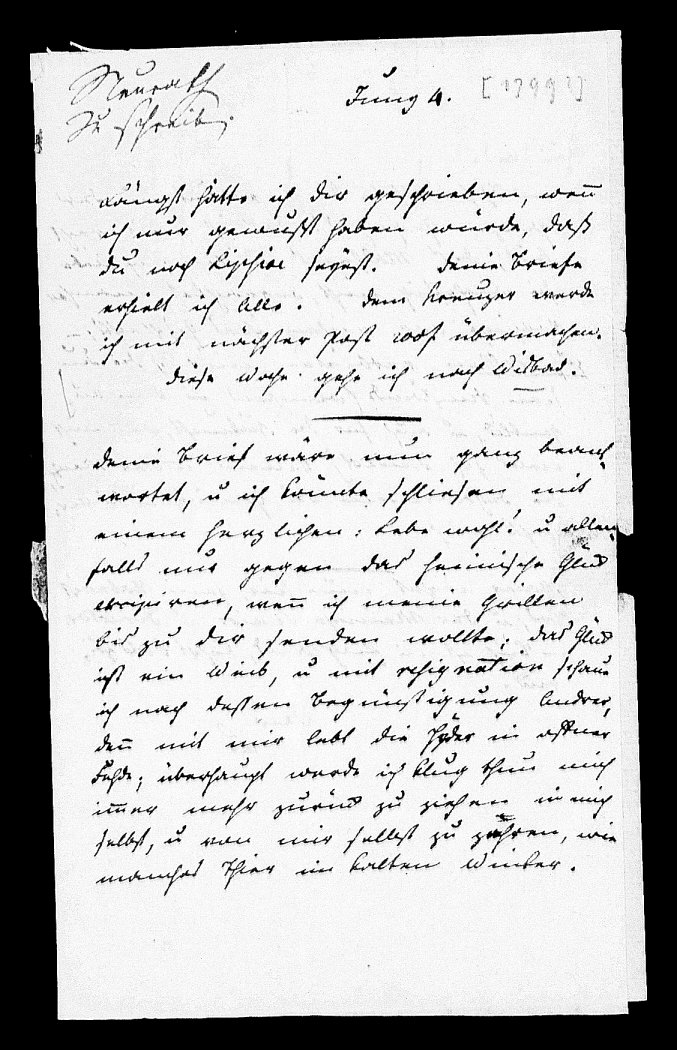 Neurath
zu schreib.
Juny 4. [1799?]
Längst hätte ich dir geschrieben, wenn
ich nur gewußt haben würde, daß
du noch seÿest. deine Briefe
erhielt ich alle. dem Kreuzer werde
ich mit nächster Post übermachen.
diese Woche gehe ich nach Wisbad.
deine Brief wäre nun ganz beant-
wortet, u ich könnte schliesen mit
einem herzlichen: Lebe wohl! u allen-
falls nur gegen das heimische Glük
, wenn ich meine Grillen
bis zu dir senden wollte; das Glük
ist ein Weib, u mit resignation schaue
ich nach dessen Begünstigung Andrer,
denn mit mir lebt die in offner
Fehde; überhaupt werde ich klug thun mich
immer mehr zurük zu ziehen in mich
selbst, u von mir selbst zu zehren, wie
manches Thier im kalten Winter.